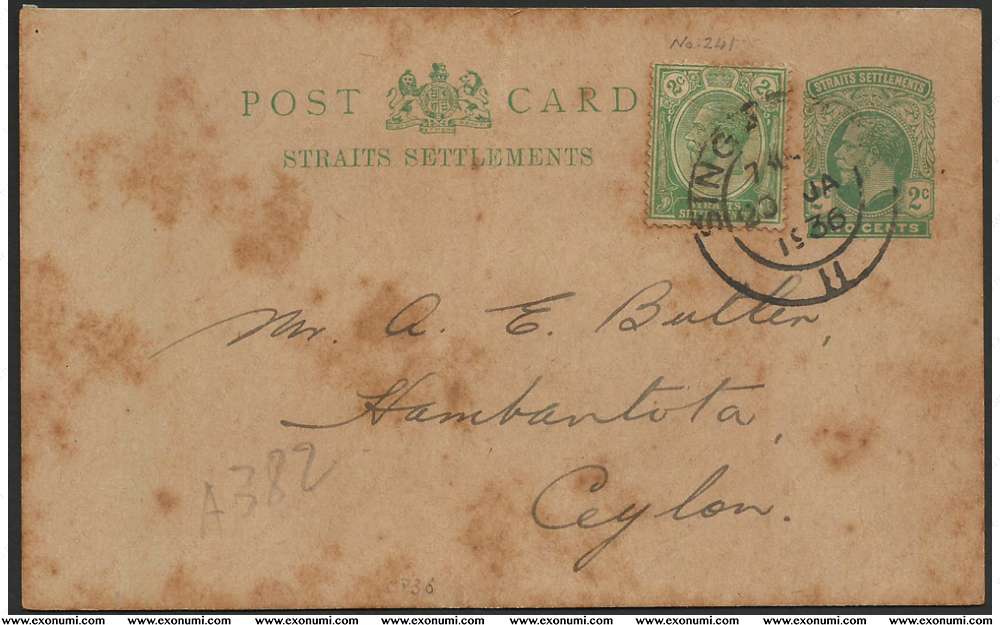 No. 241
POST CARD
STRAITS SETTLEMENTS
2c 2c
STRAITS
STRAITS SETTLEMENTS
2c
CENTS
SING
20 JA
1936
11
Mr. A. E. Buller,
Hambantota,
Ceylon.
A382
www.exonumi.com www.exonumi.com www.exonumi.com www.exonumi.com www.exonumi.com www.exonumi.com www.exonumi.com www.exonumi.com